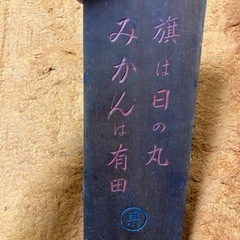 旗は日の丸
みかんは有田